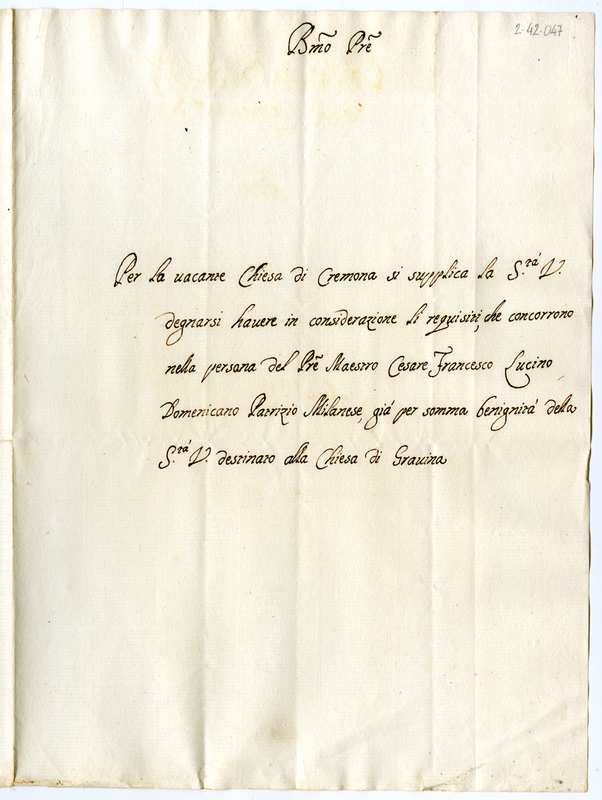 2-42-047
Bmo Pre
Per la uacante Chiesa di Cremona si supplica la S.tà V.
degnarsi hauere in considerazione li requisiti, che concorrono
nella persona del Pre Maestro Cesare Francesco Lucino
Domenicano Patrizio Milanese, già per somma benignità della
S.tà V. destinato alla Chiesa di Grauina